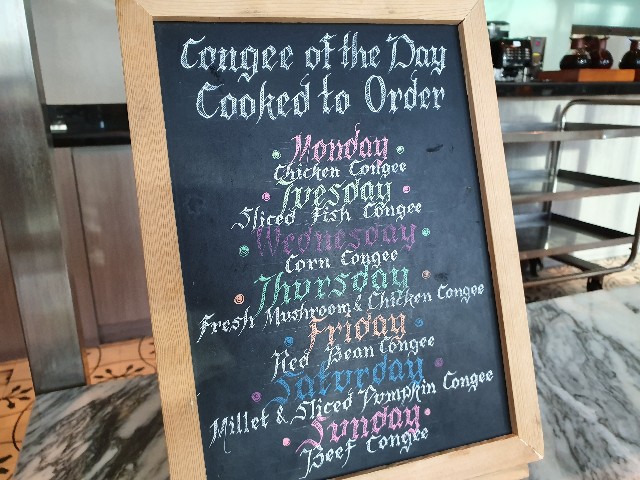 Congee of the Day
Cooked to Order
Monday
Chicken Congee
Tuesday
Sliced Fish Congee
Wednesday
Corn Congee
Thursday
Fresh Mushroom & Chicken Congee
Friday
Red Bean Congee
Saturday
Millet & Sliced Pumpkin Congee
Sunday
Beef Congee